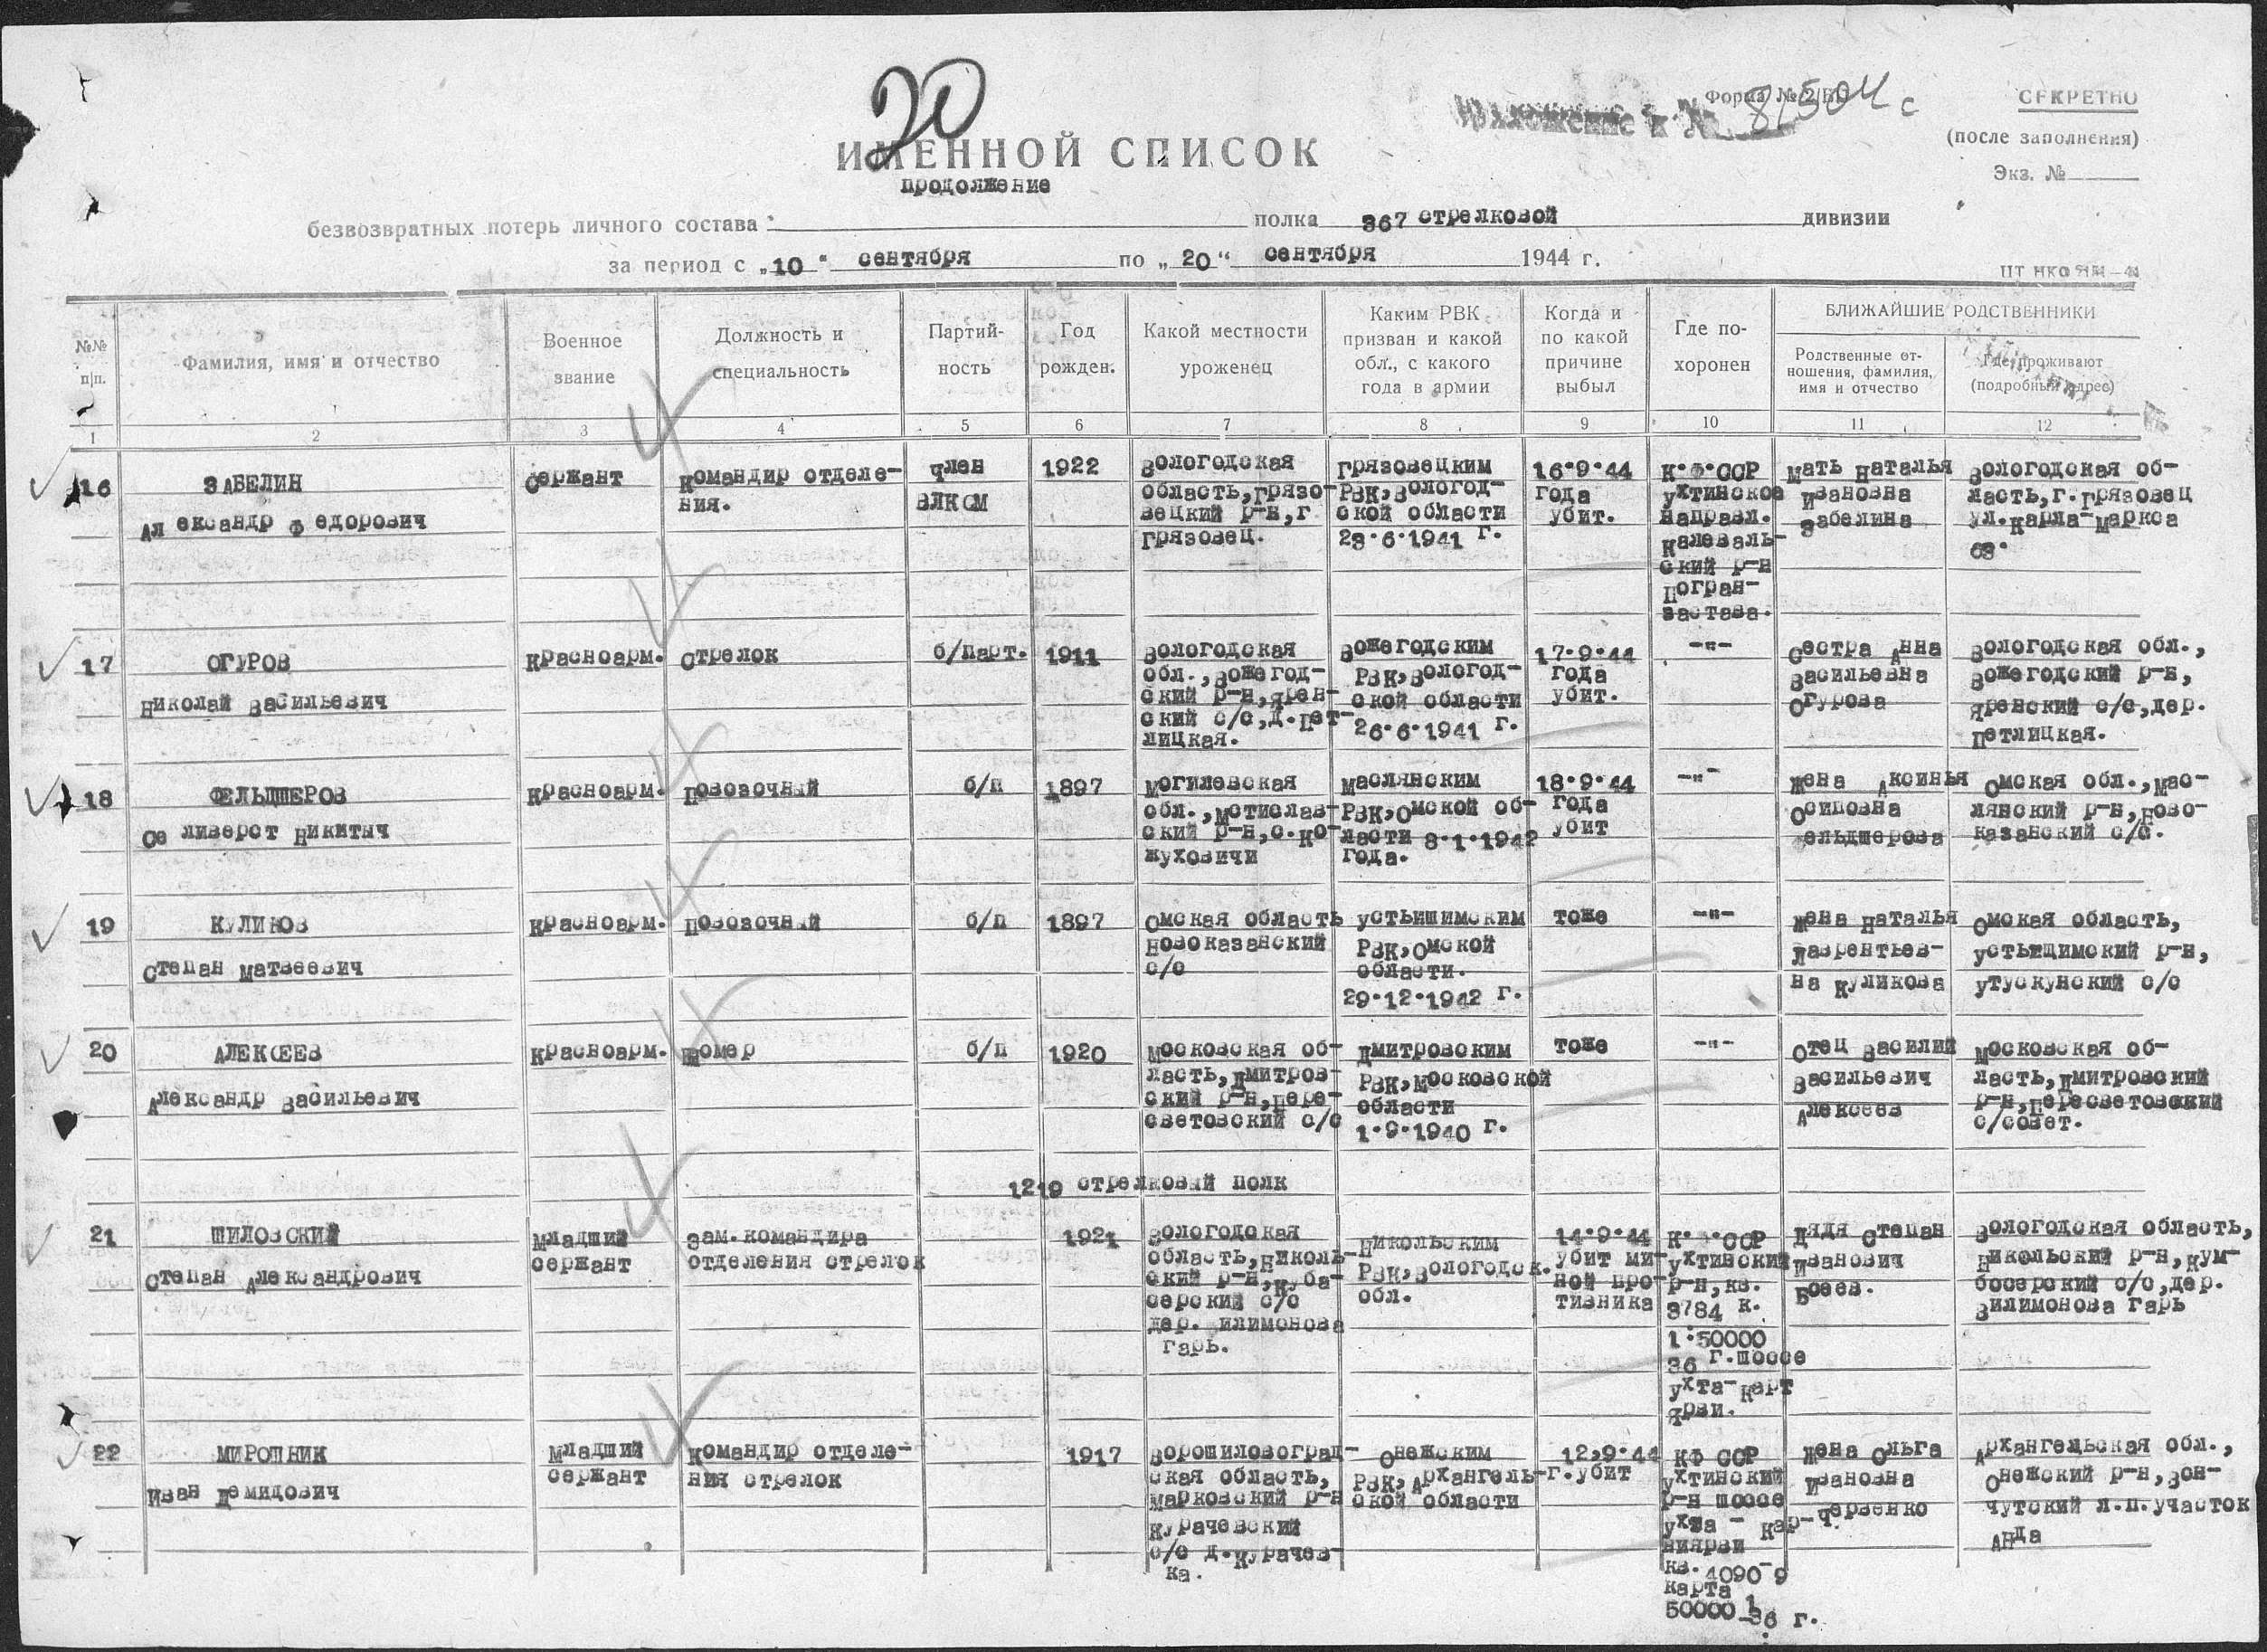 20
Форма № 2/БП
Приложение к № 81504 с
СЕКРЕТНО
(после заполнения)
Экз. №
ИМЕННОЙ СПИСОК
продолжение
безвозвратных потерь личного состава полка 367 стрелковой дивизии
за период с „10“ сентября по „20“ сентября 1944 г.
№№ п|п.
Фамилия, имя и отчество
Военное
звание
Должность и
специальность
Партий-
ность
Год
рожден.
Какой местности
уроженец
Каким РВК
призван и какой
обл., с какого
года в армии
Когда и
по какой
причине
выбыл
Где по-
хоронен
БЛИЖАЙШИЕ РОДСТВЕННИКИ
Родственные от-
ношения, фамилия,
имя и отчество
Где проживают
(подробный адрес)
1 2 3 4 5 6 7 8 9 10 11 12
16
ЗАБЕЛИН
Александр Федорович
Сержант
Командир отделе-
ния.
член
ВЛКСМ
1922
Вологодская
область, Грязо-
вецкий р-н, г
Грязовец.
Грязовецким
РВК, Вологод-
ской области
23.6.1941 г.
16.9.44
года
убит.
К.Ф.ССР
Ухтинское
направл.
Калеваль-
ский р-н
Погран-
застава.
Мать Наталья
Ивановна
Забелина
Вологодская об-
ласть, г. Грязовец
ул. Карла-Маркса
63.
17
ОГУРОВ
Николай Васильевич
Красноарм.
Стрелок
б/парт.
1911
Вологодская
обл., Вожегод-
ский р-н, Ярен-
ский с/с, д. Пет-
лицкая.
Вожегодским
РВК, Вологод-
ской области
26.6.1941 г.
17.9.44
года
убит.
-"-
Сестра Анна
Васильевна
Огурова
Вологодская обл.,
Вожегодский р-н,
Яренский с/с, дер.
Петлицкая.
18
ФЕЛЬДШЕРОВ
Селиверст Никитыч
Красноарм.
Повозочный
б/п
1897
Могилевская
обл., Мстислав-
ский р-н, с. Ко-
жуховичи
Маслянским
РВК, Омской об-
ласти 8.1.1942
года.
18.9.44
года
убит
-"-
Жена Аксинья
Осиповна
ельдшерова
Омская обл., Мас-
лянский р-н, Ново-
казанский с/с.
19
КУЛИКОВ
Степан Матвеевич
Красноарм.
Повозочный
б/п
1897
Омская область
Новоказанский
с/с
Устьишимским
РВК, Омской
области.
29.12.1942 г.
тоже
-"-
Жена Наталья
Лаврентьев-
на Куликова
Омская область,
Устьищимский р-н,
Утускунский с/с
20
АЛЕКСЕЕВ
Александр Васильевич
Красноарм.
Номер
б/п
1920
Московская об-
ласть, Дмитров-
ский р-н, Пере-
световский с/с
Дмитровским
РВК, Московской
области
1.9.1940 г.
тоже
-"-
Отец Василий
Васильевич
Алексеев
Московская об-
ласть, Дмитровский
р-н, Пересветовский
с/совет.
1219 стрелковый полк
21
ШИЛОВСКИЙ
Степан Александрович
Младший
сержант
Зам. командира
отделения стрелок
1921
Вологодская
область, Николь-
ский р-н, Куба-
серский с/с
дер. илимонова
Гарь.
Никольским
РВК, Вологодск.
обл.
14.9.44
убит ми-
ной про-
тивника
К.Ф.ССР
Ухтинский
р-н, кв.
3784 к.
1:50000
36 г. шоссе
Ухта-Карт
ярви.
Дядя Степан
Иванович
Боев.
Вологодская область,
Никольский р-н, Кум-
босерский с/с, дер.
Вилимонова Гарь
22
МИРОШНИК
Иван Демидович
Младший
сержант
Командир отделе-
ния стрелок
1917
Ворошиловоград-
ская область,
Марковский р-н
Курачевский
с/с д. Курачев-
ка.
Онежским
РВК, Архангель-
ской области
12,9.44
г. убит
КФ ССР
Ухтинский
р-н шоссе
Ухта - Кар-
ниярви
кв. 4090-9
карта
50000 1
36 г.
Жена Ольга
Ивановна
Червенко
Архангельская обл.,
Онежский р-н, Вон-
чутский л.п. участок
Анда